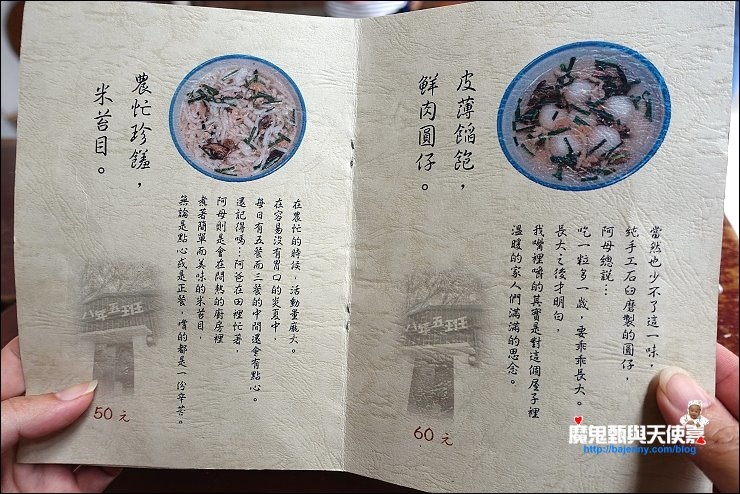 皮薄餡飽，
鮮肉圓仔。
當然也少不了這一味，
純手工石臼磨製的圓仔，
阿母總說…
吃一粒多一歲，要乖乖長大。
長大之後才明白，
我嘴裡嚼的其實是對這個屋子裡
溫暖的家人們滿滿的思念。
八年五班
60元
農忙珍饈，
米苔目。
在農忙的時候，活動量龐大。
在容易沒有胃口的炎夏中，
每日有五餐而三餐的中間還會有點心。
還記得嗎…阿爸在田裡忙著，
阿母則是會在悶熱的廚房裡
煮著簡單而美味的米苔目，
無論是點心或是正餐，嚐的都是一份辛苦。
八年五班
50元
魔鬼甄與天使嘉
http://bajenny.com/blog